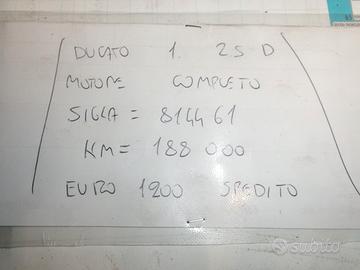 DUCATO 1. 2.5 D
MOTORE COMPLETO
SIGLA = 814461
KM = 188 000
EURO 1200 SPEDITO
subito